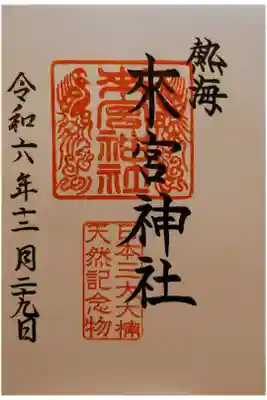 熱海
來宮神社
來宮神社
日本三大大楠
天然記念物
令和六年十二月二九日